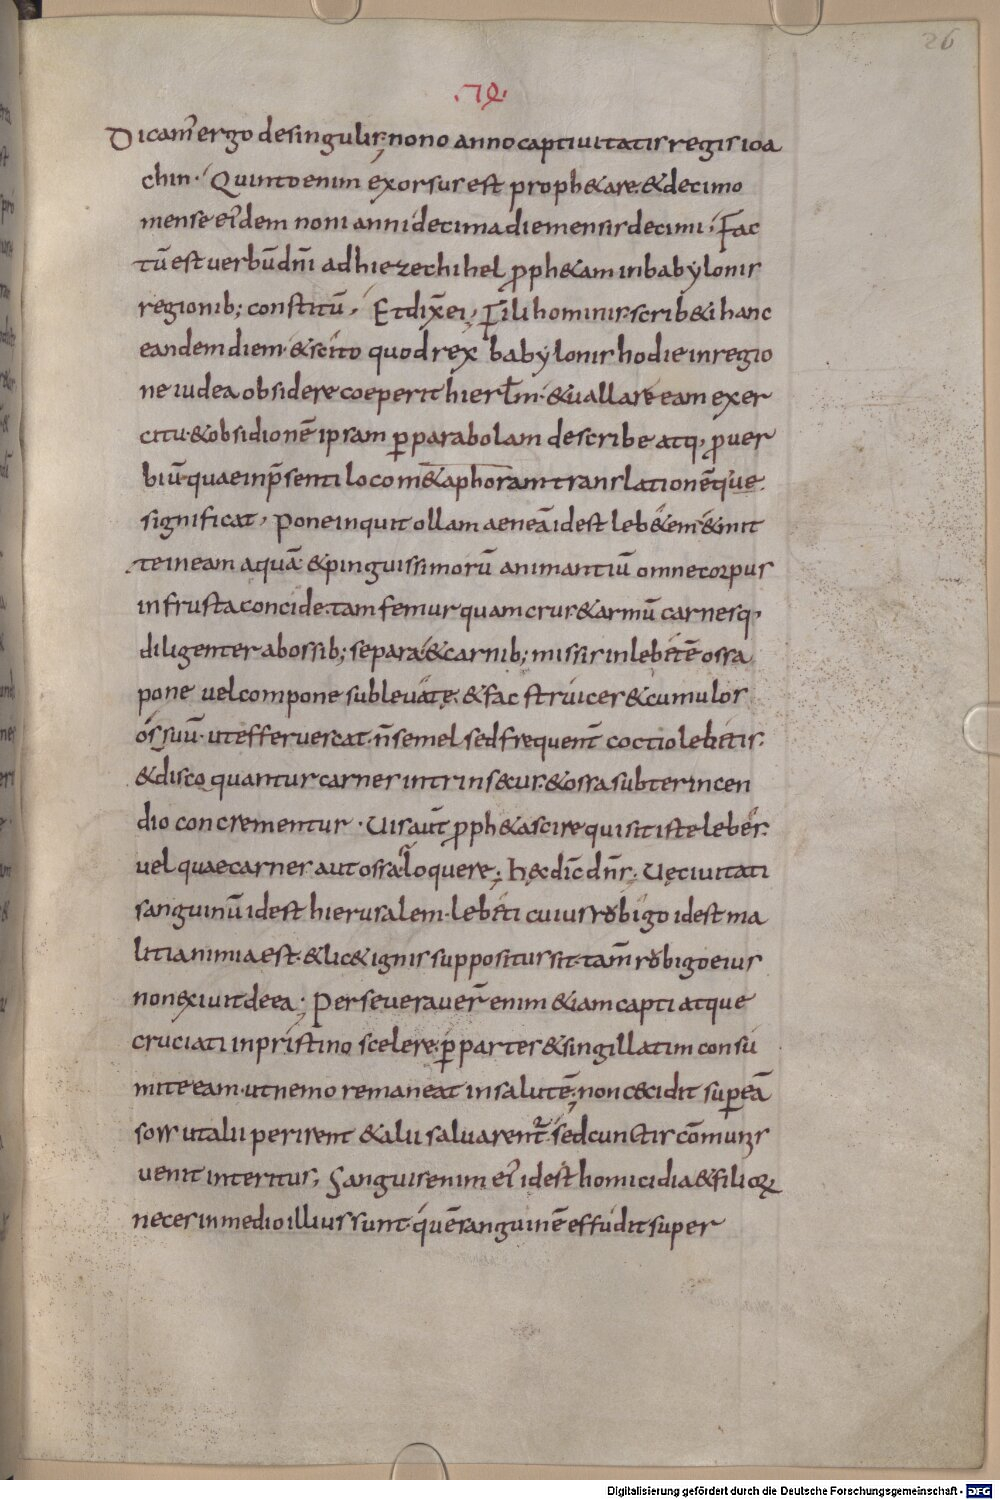 26
Dicam̄ ergo de singulis; nono anno captiuitatis regis ioa
chin· Quinto enim exorsus est proph&are·&decimo
mense ei'dem noni anni decima die mensis decimi; Fac
tū est uerbū dn̄i ad hiezechihel p̄ph&am in babylonis
regionib; constitū, Et dix̄ ei; Fili hominis scrib& hanc
eandem diem·&scito quod rex babylonis hodie in regio
ne iudea obsidere coeperit hierl̄m·&uallare eam exer
citu·&obsidionē ipsam p̄ parabolam describe atq, p̄uer
biū·quae in p̄senti loco m&aphoram translationēque
significat, Pone inquit ollam aeneā id est leb&em·&mit
te in eam aquā·&pinguissimorū animantiū omne corpus
in frusta concide·tam femur quam crus·&armū carnesq,
diligenter ab ossib; separa·&carnib; missis in lebetē ossa
pone uel compone sub lebete·&fac strues&cumulos
ossuū·ut efferuescat·n̄ semel sed frequent̄ coctio lebetis·
&disco quantur carnes intrinsecus·&ossa subter incen
dio concrementur· Uis aut̄ p̄ph&a scire qui sit iste lebes·
uel quae carnes aut ossa loquere; hęc dic̄ dn̄s; Uę ciuitati
sanguinū id est hierusalem·lebeti cuius robigo id est ma
litia nimia est·&lic& ignis suppositus sit·tam̄ robigo eius
non exiuit de ea; Perseuerauer̄ enim &iam capti atque
cruciati in pristino scelere·p̄ partes&singillatim consu
mite eam·ut nemo remaneat in salutē·non cecidit sup̄ eā
sors ut alii perirent &alii saluarent̄·sed cunctis cōmunis
uenit interitus; Sanguis enim ei' id est homicidia&filioꝝ
neces in medio illius sunt·quē sanguinē effudit super
Digitalisierung gefördert durch die Deutsche Forschungsgemeinschaft - DFG